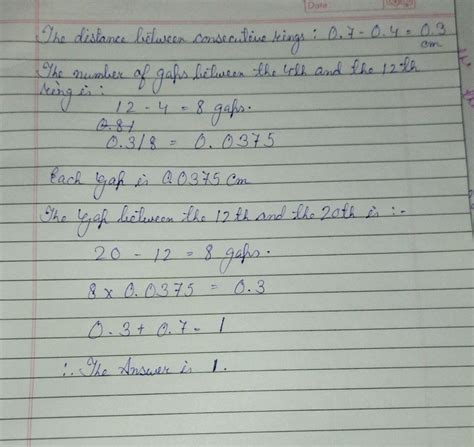 Date
The distance between consecutive rings : 0.7 - 0.4 = 0.3 cm
The number of gaps between the 4th and the 12th
ring is :
12 - 4 = 8 gaps.
0.8/
0.3/8 = 0.0375
Each gap is 0.0375 cm
The gap between the 12th and the 20th is :-
20 - 12 = 8 gaps.
8 x 0.0375 = 0.3
0.3 + 0.7 = 1
∴ The Answer is 1.